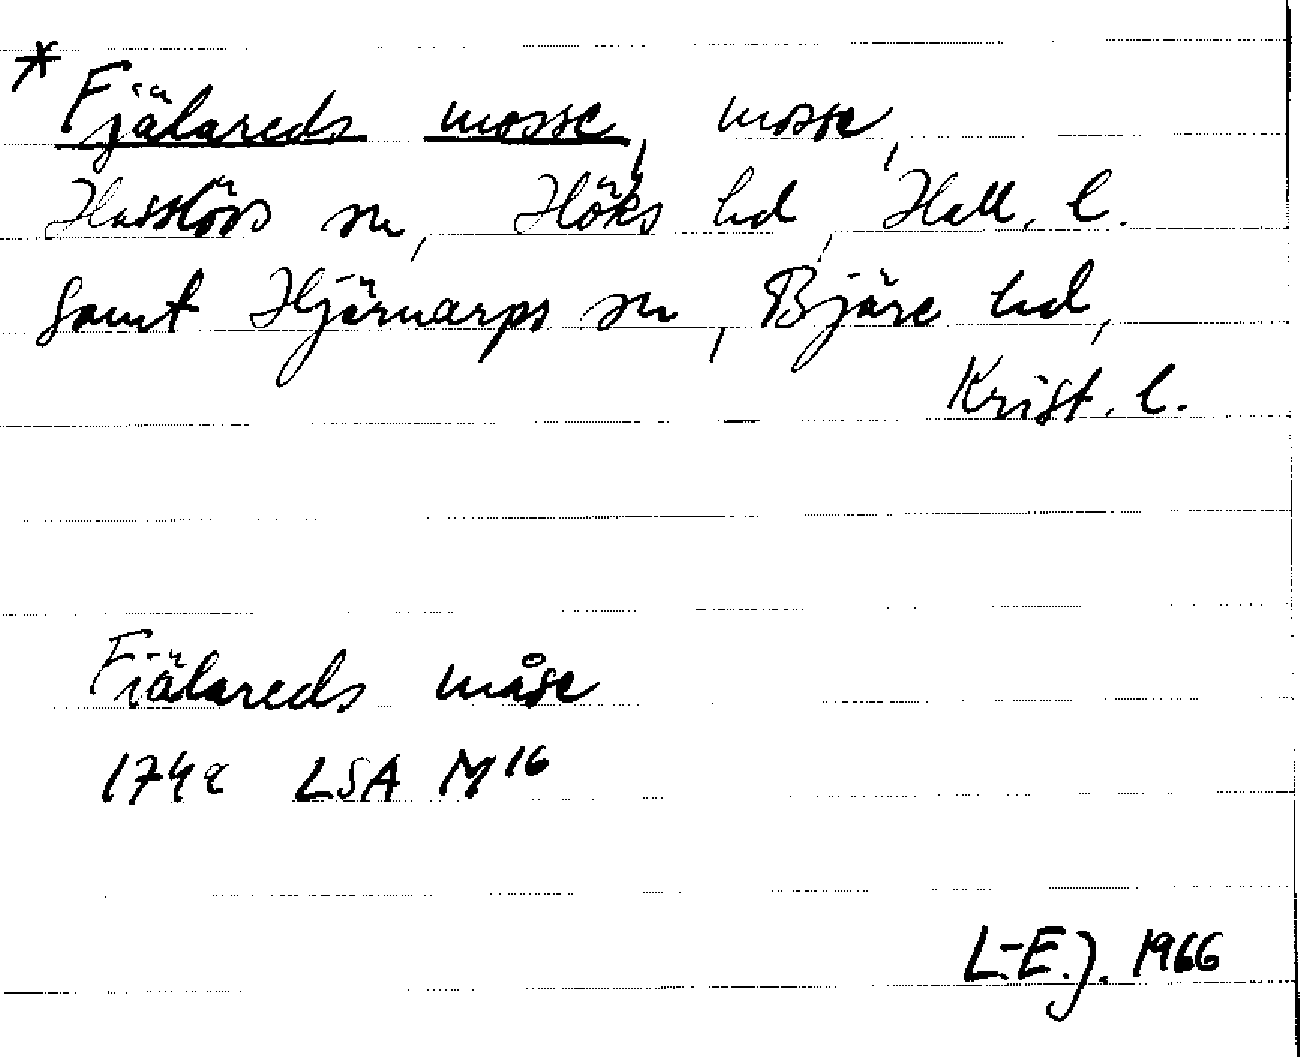 * Fjälareds mosse, mosse,
Hasslövs sn, Höks hd, Hall. l.
samt Hjärnarps sn, Bjäre hd,
Krist. l.
Fiälareds måse
LSA M16
L-E.J. 1966